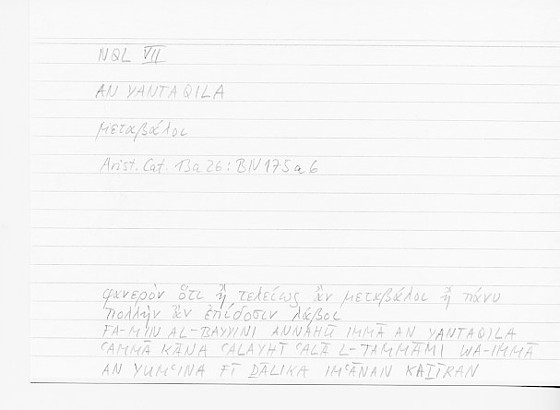 NQL VII
AN YANTAQILA
μεταβάλοι
Arist. Cat. 13a26 : BN 175a6
φανερὸν ὅτι ἢ τελείως ἂν μεταβάλοι ἢ πάνυ
πολλὴν ἂν ἐπίδοσιν λάβοι
FA-MIN AL-BAYYINI ANNAHŪ IMMĀ AN YANTAQILA
ʿAMMĀ KĀNA ʿALAYHI ʿALĀ L-TAMMĀMI WA-IMMĀ
AN YUMʿINA FĪ ḎĀLIKA IMʿĀNAN KAṮĪRAN